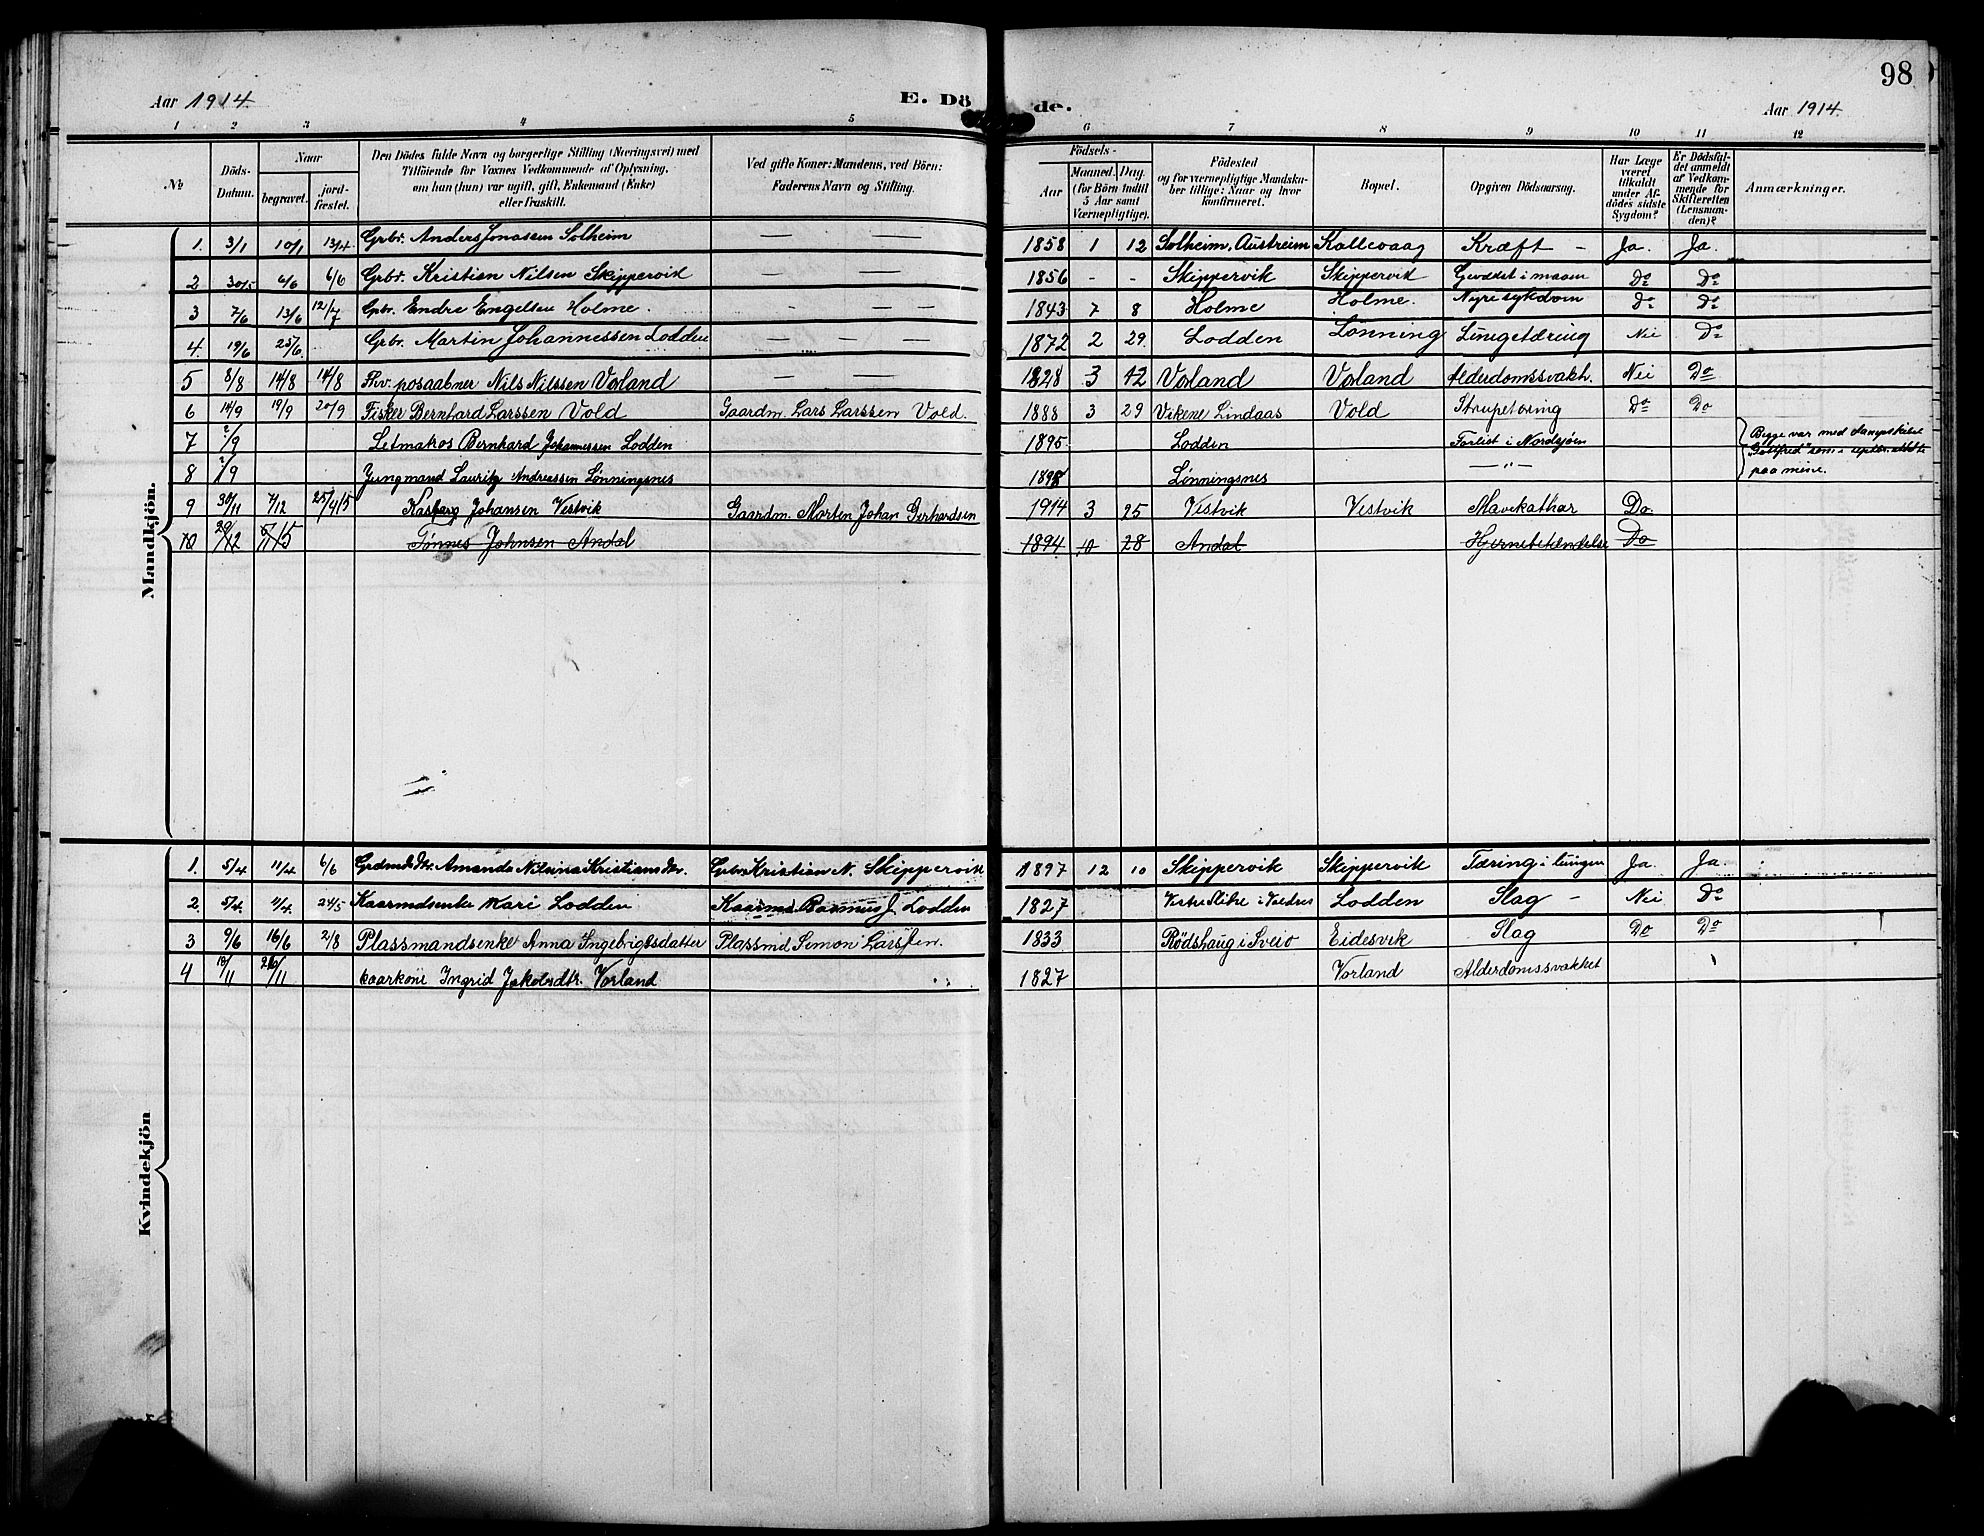 98
Aar 1914.
E. Dö de.
Aar 1914.
1 2 3 4 5 6 7 8 9 10 11 12
No
Döds-Datum.
Naar
begravet. jord-fæstet.
Den Dödes fulde Navn og borgerlige Stilling (Næringsvei) med
Tilföiende for Voxnes Vedkommende af Oplysning,
om han (hun) var ugift, gift, Enkemand (Enke)
eller fraskilt.
Ved gifte Koner: Mandens, ved Börn:
Faderens Navn og Stilling.
Födsels-
Aar
Maaned. Dag.
(for Börn indtil
5 Aar samt
Værnepligtige).
Födested
og for værnepligtige Mandska-
ber tillige: Naar og hvor
konfirmeret.
Bopæl.
Opgiven Dödsaarsag.
Har Læge
været
tilkaldt
under Af-
dödes sidste
Sygdom?
Er Dödsfal-
det anmeldt
af Vedkom-
mende for
Skifteretten
(Lensman-
den)?
Anmærkninger.
Mandkjön.
1. 3/1 10/1 13/4 Grbr. Anders Jonassen Solheim — — 1858 1 12 Solheim, Austreim Kallevaag Kræft – Ja. Ja.
2 30/5 6/6 6/6 Grbr. Kristian Nilsen Skippervik — — 1856 - - Skippervik Skippervik Do Do
3 7/6 13/6 12/7 Gbr. Endre Engelsen Holme. — — 1843 7 8 Holme Holme. Nyresykdom Do Do
4. 19/6 25/6. Grbr. Martin Johannessen Lodden — — 1872 2 29. Lodden Lønning Lungetæring Nei Do
5 8/8 14/8 14/8 Fhv. posaabner Nils Nilssen Vorland — — 1828 3 12 Vorland Vorland Alderdomssvakh. Nei Do
6 14/9 19/9 20/9 Fisker Bernhard Larssen Vold Gaardm. Lars Larssen Vold. 1888 3 29 Vikene Lindaas Vold Strupetæring Do Do
7 2/9 Letmatros Bernhard Johannessen Lodden 1895 Lodden Forlist i Nordsjøen Begge var med dampskibet
8 2/9 Jungmand Lauritz Andreassen Lønningsnes 189 Lønningsnes —"— "Gottfred" som i septbr.
paa mine.
9 30/11 7/12 25/4 15 Kasberg Johansen Vestvik Gaardm. Morten Johan Gerhardsen 1914 3 25 Vestvik Vestvik Mavekathar Do.
10 29/12 5/1 15 Tønnes Johnsen Andal 1894 10 28 Andal Hjernebetændelse Do
Kvindekjön
1. 5/4 11/4 6/6 Grdmdsdtr. Amanda Nilsina Kristiansdtr. Grbr. Kristian N. Skippervik 1897 12 10 Skippervik Skippervik Tæring i lungen Ja. Ja.
2. 5/4. 11/4. 24/5 Kaarmdsenke Mari Lodden Kaarmd. Rasmus J. Lodden 1827 Vestre Slidre i Valdres Lodden Slag – Nei Do
3 9/6 16/6 2/8 Plassmandsenke Anna Ingebrigtsdatter Plassmd Simon Larssen. 1833 Rødshaug i Sveio Eidesvik Slag Do Do
4 18/11 26/11 kaarkone Ingrid Jakobsdtr. Vorland 1827 Vorland Alderdomssvakhet